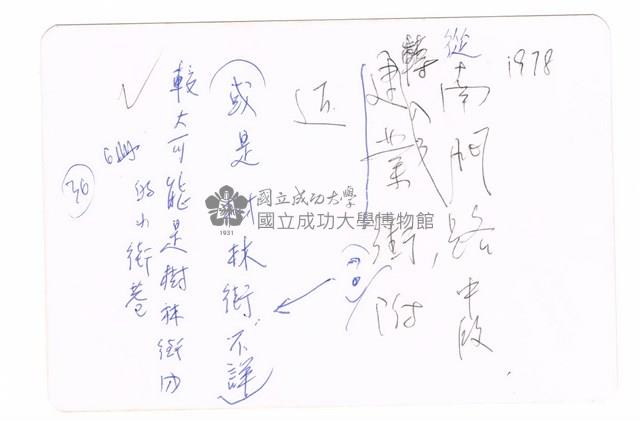 1978
從南門路中段,
轉入
建業街附
近
(或是樹林街,不詳)
較大可能是樹林街內
的小街巷
36
國立成功大學
國立成功大學博物館
1931